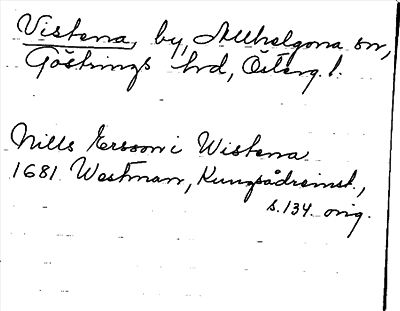 Vistena, by, Allhelgona sn,
Göstrings hd, Österg. l.
Nills Ersson i Wistena
1681. Westman, Kungsådreinst.,
s. 134. orig.